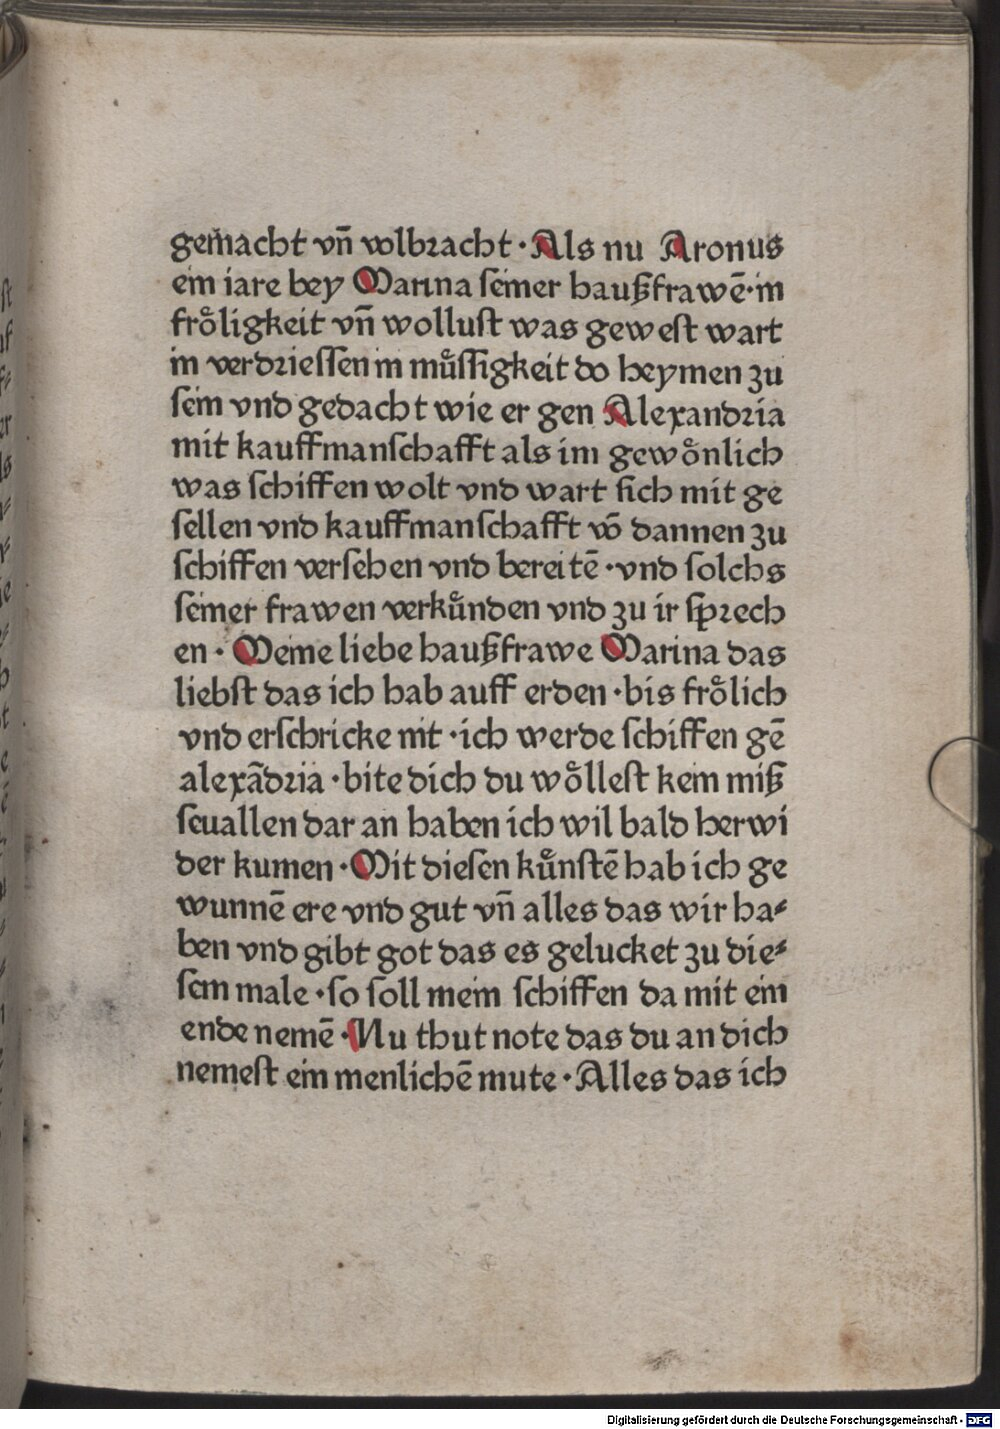 gemacht vñ volbracht · Als nu Aronus
ein iare bey Marina seiner haußfrawē · in
frölicheit vñ wollust was gewest wart
in verdriessen in müssigkeit do heymen zu
sein vnd gedacht wie er gen Alexandria
mit kauffmanschafft als im gewönlich
was schiffen wolt vnd wart sich mit ge
sellen vnd kauffmanschafft vō dannen zu
schiffen versehen vnd bereitē · vnd solchs
seiner frawen verkünden vnd zu ir sprech
en · Meine liebe haußfrawe Marina das
liebst das ich hab auff erden · bis frölich
vnd erschricke nit · ich werde schiffen gē
alexādria · bite dich du wöllest kein miß
seuallen dar an haben ich wil bald herwi
der kumen · Mit diesen künstē hab ich ge
wunnē ere vnd gut vñ alles das wir ha⸗
ben vnd gibt got das es gelucket zu die⸗
sem male · so soll mein schiffen da mit ein
ende nemē · Nu thut note das du an dich
nemest ein menlichē mute · Alles das ich
Digitalisierung gefördert durch die Deutsche Forschungsgemeinschaft - DFG